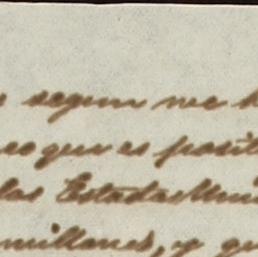 segun me
que es posit
los Estados Uni
millones, y qu